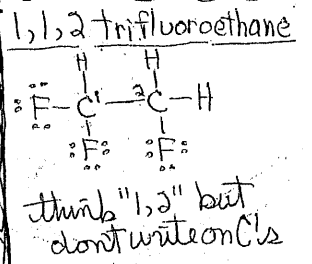 1,1,2 trifluoroethane
H H
F-C¹-²C-H
F F
think "1,2" but
dont write on C's